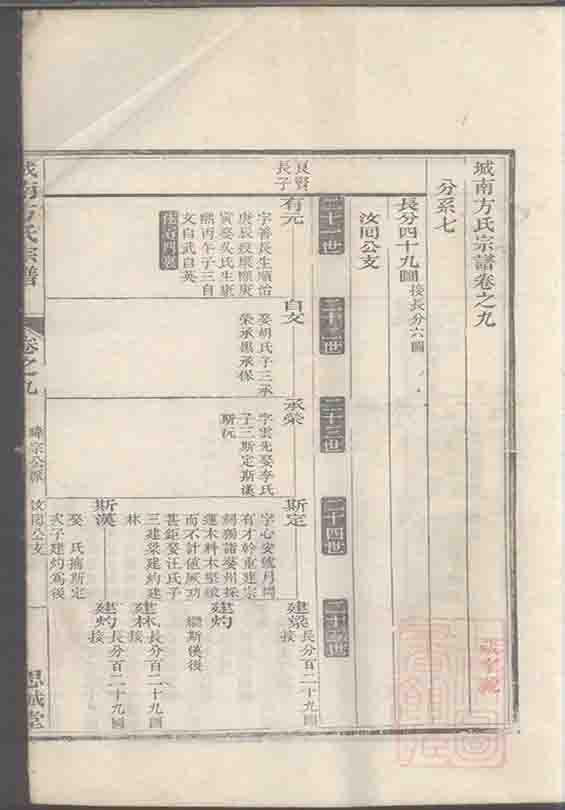 城南方氏宗譜卷之九
分系七
長分四十九圖 接長分六圖
汝囘公支
二十一世
二十二世
二十三世
二十四世
二十五世
良賢
長子
有元
字善長生順治
庚辰歿康熙庚
寅娶吳氏生康
熙丙午子三自
文自武自英
自文
娶胡氏子三承
榮承恩承保
承榮
字雲先娶李氏
子三斯定斯漢
斯沅
斯定
字心安號月
有才幹重建宗
祠
運木料木堅緻
而不計値厥功
甚鉅娶汪氏子
三建梁建灼建
林
斯漢
娶 氏
次子建灼爲後
建梁 接長分百二十九圖
建灼
繼斯漢後
建林 接長分百二十九圖
建灼 接長分百二十九圖
城南方氏宗譜
卷之九
宗公派
汝囘公支
一
思誠堂